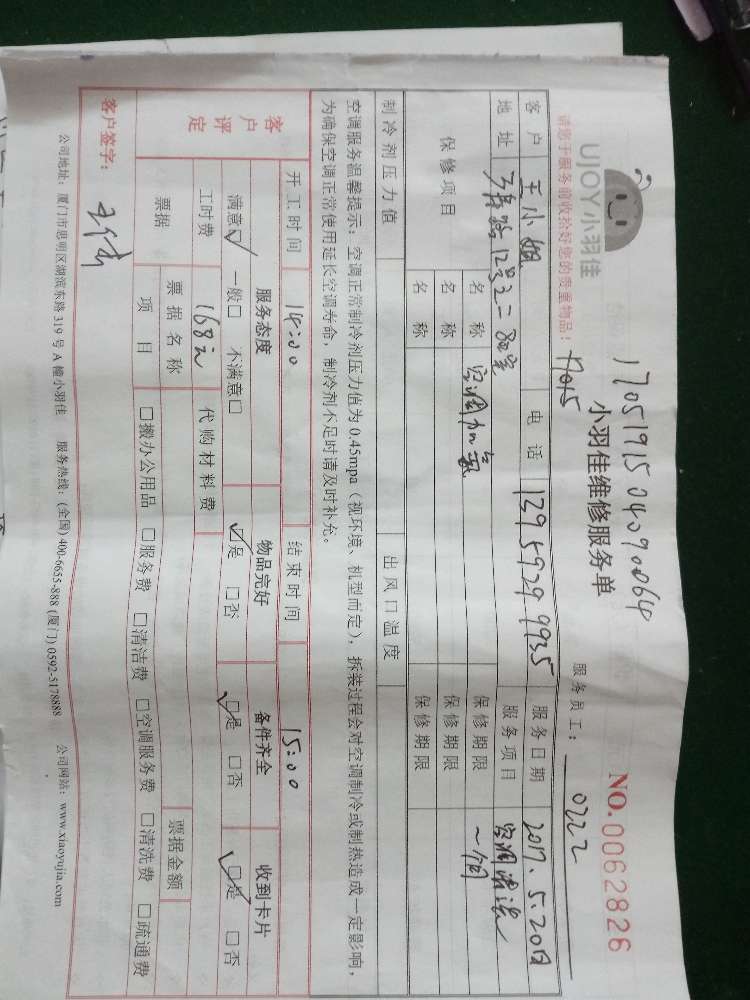 UJOY小羽佳
1705191504090064
小羽佳维修服务单
NO.0062826
请您于服务前收拾好您的贵重物品!
服务员工: 0222
客户 王小姐 电话 13959299935 服务日期 2017.5.20日
地址 服务项目 空调清洗
保修项目 名称 空调加氟 保修期限 一个月
名称 保修期限
名称 保修期限
制冷剂压力值 出风口温度
空调服务温馨提示: 空调正常制冷剂压力值为0.45mpa(视环境、机型而定),拆装过程会对空调制冷或制热造成一定影响,
为确保空调正常使用延长空调寿命,制冷剂不足时请及时补充。
开工时间 14:00 结束时间 15:00
客户评定 服务态度 物品完好 备件齐全 收到卡片
满意☑ 一般□ 不满意□ ☑是 □否 ☑是 □否 ☑是 □否
工时费 168元 代购材料费
票据 票据名称 票据金额
项目 □搬办公用品 □服务费 □清洁费 □空调服务费 □清洗费 □疏通费
客户签字:
公司地址: 厦门市思明区湖滨东路319号A幢小羽佳 服务热线: (全国) 400-6655-888 (厦门) 0592-5178888 公司网站: www.xiaoyujia.com